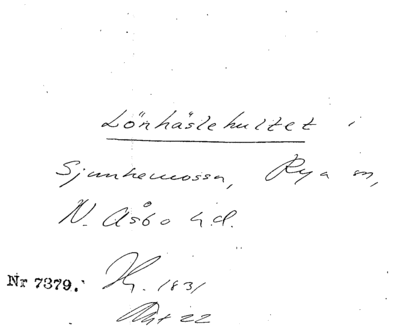 Lönhäslehultet i
Sjunkemossa, Rya sn,
N. Åsbo hd.
Nr 7379. 1831
22